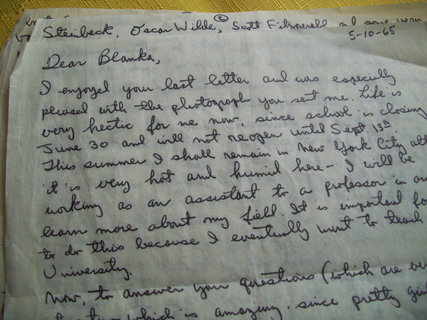 Steinbeck, Oscar Wilde, Scott Fitzgerald and some
5-10-65
Dear Blanka,
I enjoyed your last letter and was especially
pleased with the photograph you sent me. Life is
very hectic for me now, since school is closing
June 30 and will not reopen until Sept 13th
This summer I shall remain in New York City
it is very hot and humid here - I will be
working as an assistant to a professor in
learn more about my field. It is important
to do this because I eventually want to teach
University.
Now, to answer your questions (which are
which is amazing, since pretty